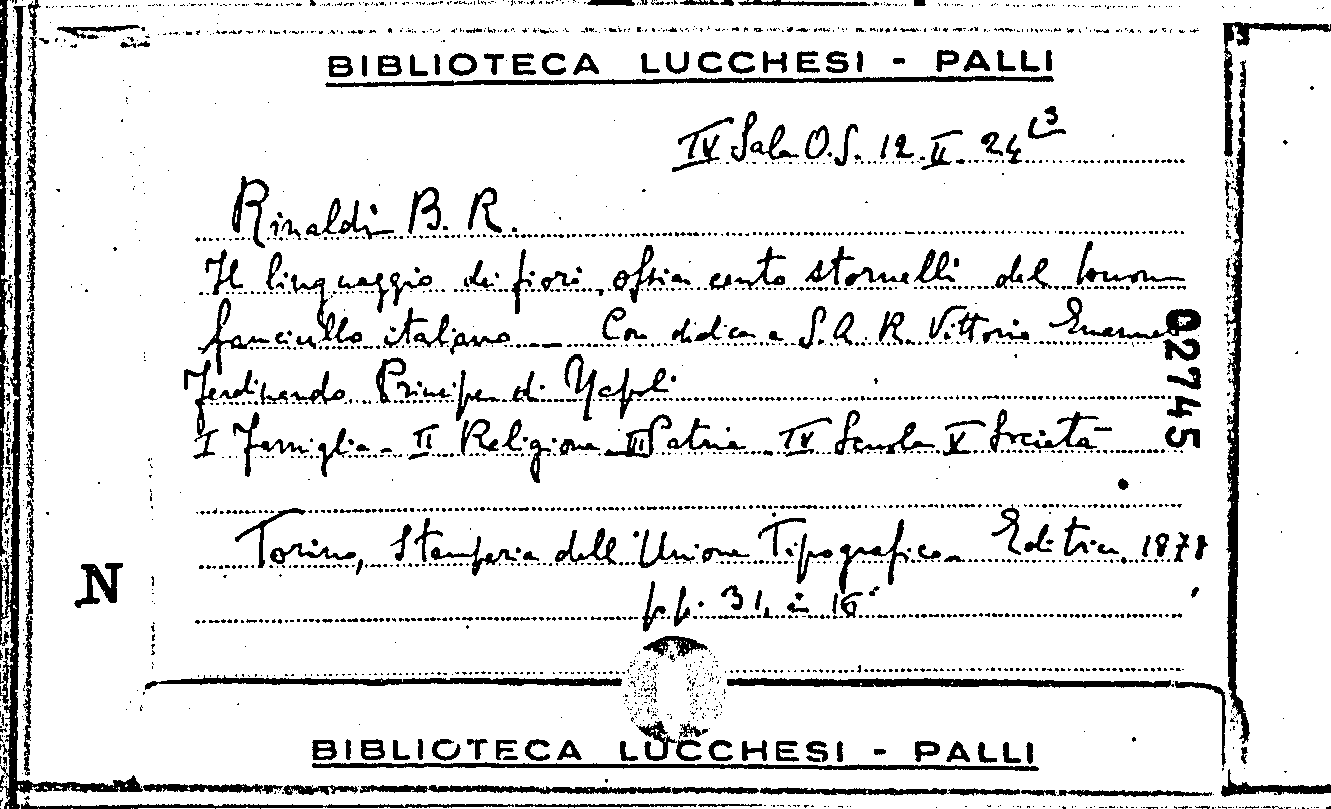 BIBLIOTECA LUCCHESI - PALLI
IV Sala O.S. 12. II. 24
Rinaldi B. R.
Il linguaggio dei fiori, ossia cento stornelli del buon
fanciullo italiano — Con dedica a S.A.R. Vittorio Emanuel
Ferdinando Principe di Napoli
I Famiglia - II Religione III Patria IV Scuola V Società
02745
Torino, Stamperia dell'Unione Tipografica Editrice, 1878
N
p.p. 31, in 16°
BIBLIOTECA LUCCHESI - PALLI